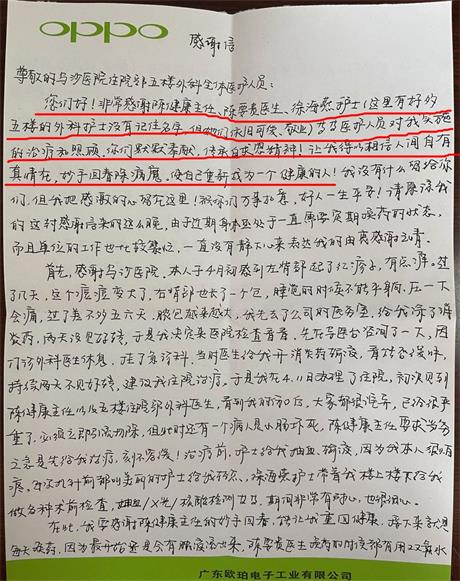 oppo
感谢信
尊敬的乌沙医院住院部五楼外科全体医护人员：
您们好！非常感谢陈健康主任、陈要贵医生、徐海燕护士（这里有好多
五楼的外科护士没有记住名字，但她们依旧可爱、敬业）等等医护人员对我实施
的治疗和照顾，你们默默奉献，传承白求恩精神！让我得以相信人间自有
真情在，妙手回春除病魔，使自己重新成为一个健康的人！我没有什么留给你
们，但我把感激的心留在这里！祝你们万事如意，好人一生平安！请原谅我
的这封感谢信来的这么晚，由于近期身体还处于一直需要定期换药的状态，
而且单位的工作也比较紧忙，一直没有静下心来表达我的由衷感谢之情。
首先，感谢乌沙医院。本人于4月初感到左臂部起了红疹子，有点痒。过
了几天，这个痘痘变大了，右臂部也长了一个包，睡觉的时候不能平躺，压一下
会痛，过了差不多五六天，脓包越来越大，我先去了公司的医务室，给我涂了消
炎药，两天没见好转，于是我决定来医院检查看看，先在导医台咨询了一下，因
门诊外科医生休息，挂了急诊科，当时医生给我开消炎药输液，看能否缓解，
持续两天不见好转，建议我住院治疗，于是我在4.11日办理了住院，初次见到
陈健康主任以及五楼住院部外科医生，看到我的伤口后，大家都很诧异，已经很严
重了，必须立即引流切除，但此时还有一个病人是心肺坏死，陈健康主任要求当务
之急是先给我治疗，刻不容缓！治疗前，护士给我抽血、输液，因为我本人很怕
疼，每次扎针前都叫查前的护士给我轻点，徐海燕护士带着我楼上楼下给我
做各种术前检查，抽血/X光/核酸检测等等，期间非常有耐心，也很细心。
在此，我要感谢陈健康主任的妙手回春，能让我重回健康。接下来就是
每天换药，因为最开始还是会有脓液流出来，陈要贵医生换药的时候都用双氧水
广东欧珀电子工业有限公司